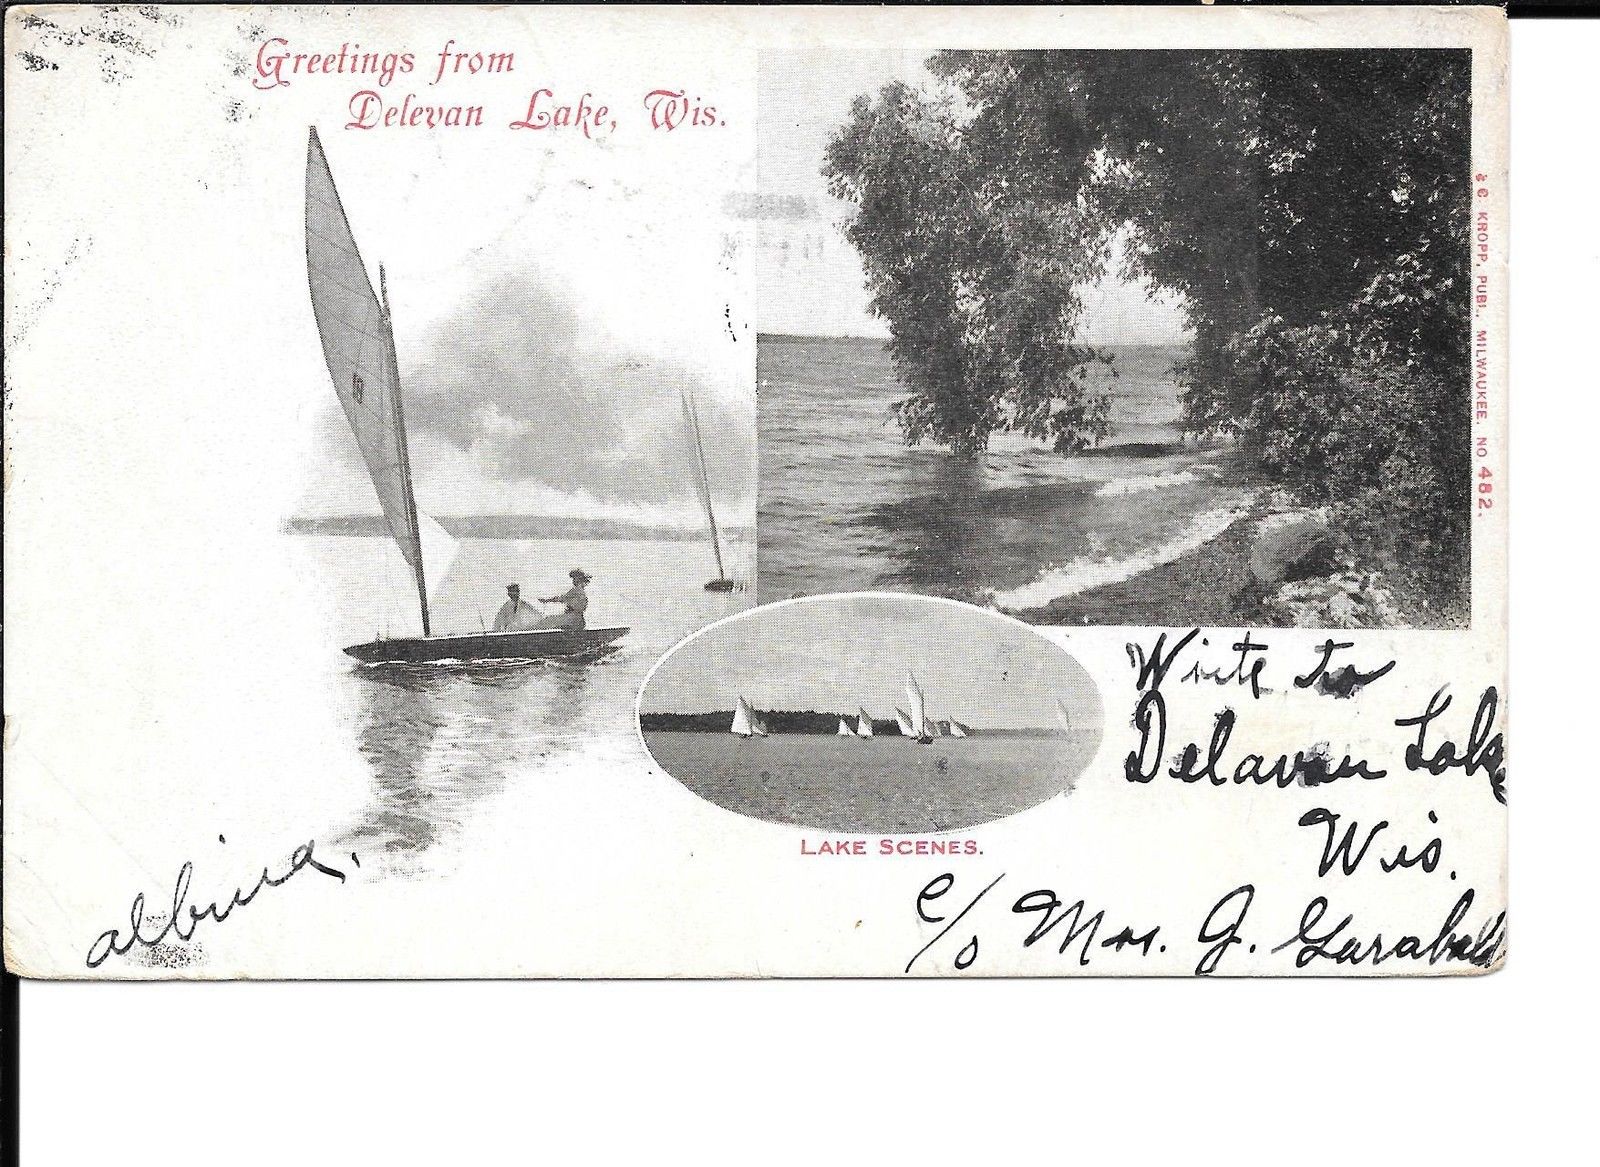 Greetings from
Delevan Lake, Wis.
E C KROPP, PUBL. MILWAUKEE. NO 482.
LAKE SCENES.
Write to
Delavan Lake
Wis.
c/o Mrs. G. Garabaldi
albina.